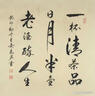 一杯清茶品
日月半壺
老酒醉人生